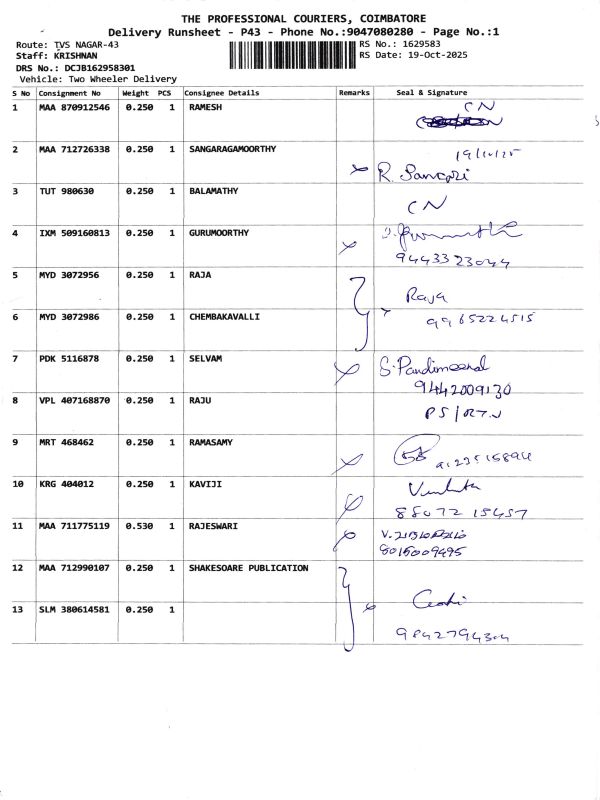 THE PROFESSIONAL COURIERS, COIMBATORE
Delivery Runsheet - P43 - Phone No.:9047080280 - Page No.:1
Route: TVS NAGAR-43 RS No.: 1629583
Staff: KRISHNAN RS Date: 19-Oct-2025
DRS No.: DCJB162958301
Vehicle: Two Wheeler Delivery
S No Consignment No Weight PCS Consignee Details Remarks Seal & Signature
1 MAA 870912546 0.250 1 RAMESH CN
2 MAA 712726338 0.250 1 SANGARAGAMOORTHY 19/10/25
R.
3 TUT 980630 0.250 1 BALAMATHY CN
4 IXM 509160813 0.250 1 GURUMOORTHY
9443323044
5 MYD 3072956 0.250 1 RAJA Raja
6 MYD 3072986 0.250 1 CHEMBAKAVALLI 9965224515
7 PDK 5116878 0.250 1 SELVAM S. Pandimeenal
9442009130
8 VPL 407168870 0.250 1 RAJU
9 MRT 468462 0.250 1 RAMASAMY
10 KRG 404012 0.250 1 KAVIJI
88072 15457
11 MAA 711775119 0.530 1 RAJESWARI
8015009495
12 MAA 712990107 0.250 1 SHAKESOARE PUBLICATION
13 SLM 380614581 0.250 1
9842794304